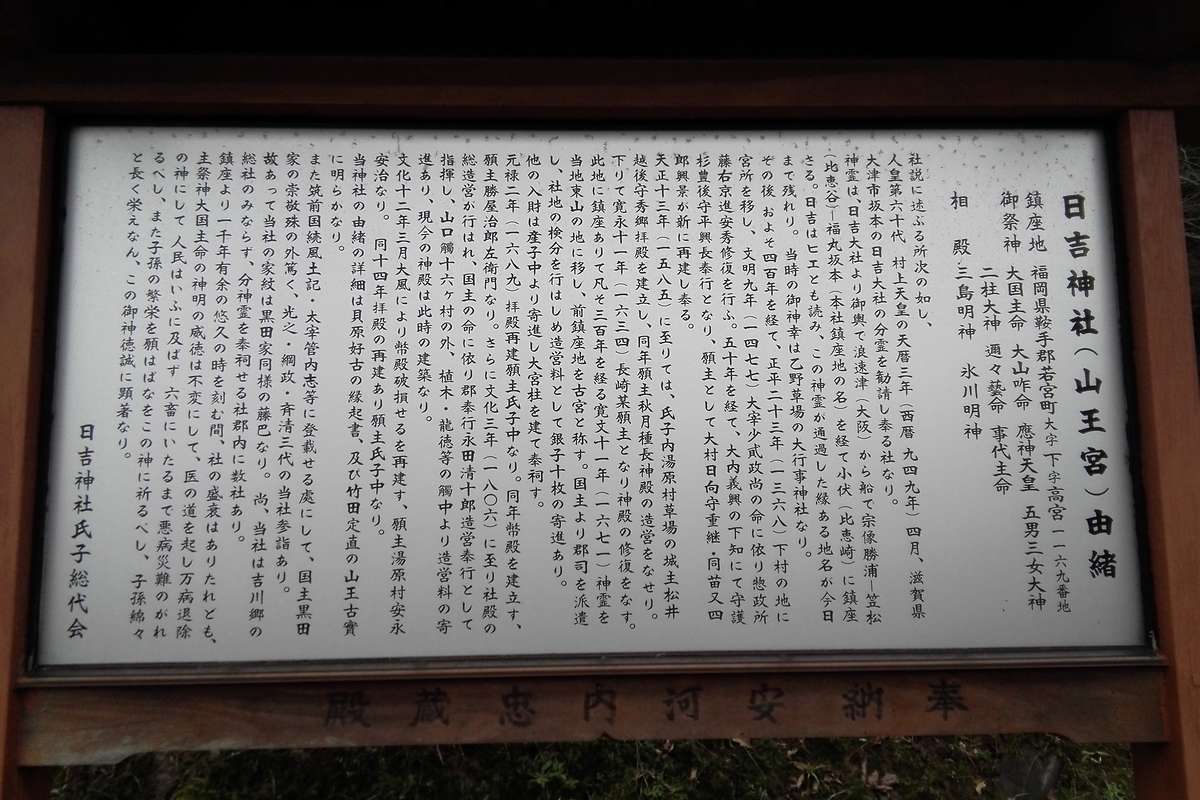 日吉神社(山王宮)由緒
鎮座地 福岡県鞍手郡若宮町大字下字高宮一一六九番地
御祭神 大国主命 大山咋命 應神天皇 五男三女大神
二柱大神 邇々藝命 事代主命
相殿 三島明神 氷川明神
社説に述ぶる所次の如し、
人皇第六十代 村上天皇の天暦三年(西暦 九四九年)四月、滋賀県
大津市坂本の日吉大社の分霊を勧請し奉る社なり。
神霊は、日吉大社より御輿で浪速津(大阪)から船で宗像勝浦―笠松
(比恵谷)―福丸坂本(本社鎮座地の名)を経て小伏(比恵崎)に鎮座
さる。日吉はヒエとも読み、この神霊が通過した縁ある地名が今日
まで残れり。当時の御神幸は乙野草場の大行事神社なり。
その後 およそ四百年を経て、正平二十三年(一三六八)下村の地に
宮所を移し、文明九年(一四七七)大宰少貳政尚の命に依り惣政所
藤右京進安秀修復を行ふ。五十年を経て、大内義興の下知にて守護
杉豊後守平興長奉行となり、願主として大村日向守重継・同苗又四
郎興景が新に再建し奉る。
天正十三年(一五八五)に至りては、氏子内湯原村草場の城主松井
越後守秀郷拝殿を建立し、同年願主秋月種長神殿の造営をなせり。
下りて寛永十一年(一六三四)長崎某願主となり神殿の修復をなす。
此地に鎮座ありて凡そ三百年を経る寛文十一年(一六七一)神霊を
当地東山の地に移し、前鎮座地を古宮と称す。国主より郡司を派遣
し、社地の検分を行はしめ造営料として銀子十枚の寄進あり。
他の入財は産子中より寄進し大宮柱を建て奉祠す。
元禄二年(一六八九)拝殿再建願主氏子中なり。同年幣殿を建立す、
願主勝屋治郎左衛門なり。さらに文化三年(一八〇六)に至り社殿の
総造営が行はれ、国主の命に依り郡奉行永田清十郎造営奉行として
指揮し、山口觸十六ヶ村の外、植木・龍徳等の觸中より造営料の寄
進あり、現今の神殿は此時の建築なり。
文化十二年三月大風により幣殿破損せるを再建す、願主湯原村安永
安治なり。 同十四年拝殿の再建あり願主氏子中なり。
当神社の由緒の詳細は貝原好古の縁起書、及び竹田定直の山王古實
に明らかなり。
また筑前国続風土記・太宰管内志等に登載せる處にして、国主黒田
家の崇敬殊の外篤く、光之・綱政・斉清三代の当社参詣あり。
故あって当社の家紋は黒田家同様の藤巴なり。 尚、当社は吉川郷の
総社のみならず、分神霊を奉祠せる社郡内に数社あり。
鎮座より一千年有余の悠久の時を刻む間、社の盛衰はありたれども、
主祭神大国主命の神明の威徳は不変にして、医の道を起し万病退除
の神にして 人民はいふに及ばす 六畜にいたるまで悪病災難のがれ
るべし、また子孫の繁栄を願はばなをこの神に祈るべし、子孫綿々
と長く栄えなん、この御神徳誠に顕著なり。
日吉神社氏子総代会
奉納 安河内忠蔵殿